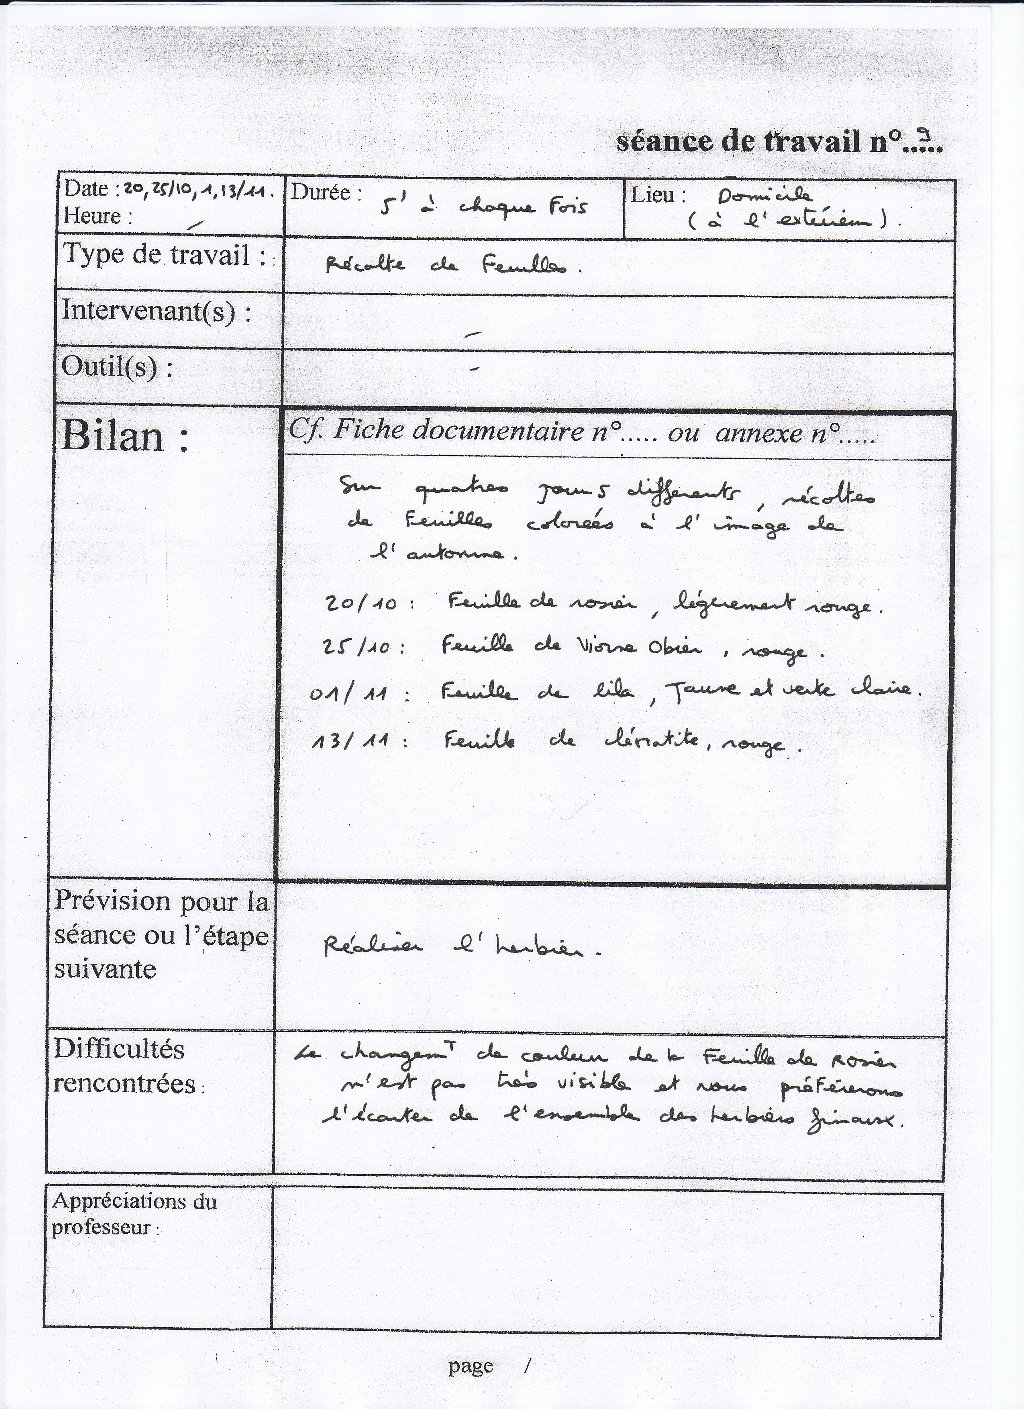 séance de travail n°..9...
Date : 20, 25/10, 1, 13/11.
Heure : /
Durée : 5' à chaque Fois
Lieu : Domicile
(à l'extérieur).
Type de travail : Récolte de Feuilles.
Intervenant(s) : -
Outil(s) : -
Bilan :
Cf. Fiche documentaire n°..... ou annexe n°.....
Sur quatres jours différents, récoltes
de Feuilles colorées à l'image de
l'automne.
20/10 : Feuille de rosier, légèrement rouge.
25/10 : Feuille de Viorne Obier, rouge.
01/11 : Feuille de lila, Jaune et verte claire.
13/11 : Feuille de clématite, rouge.
Prévision pour la
séance ou l'étape
suivante
Réaliser l'herbier.
Difficultés
rencontrées :
Le changemT de couleur de la Feuille de Rosier
n'est pas très visible et nous préférerons
l'écarter de l'ensemble des herbiers finaux.
Appréciations du
professeur :
page /